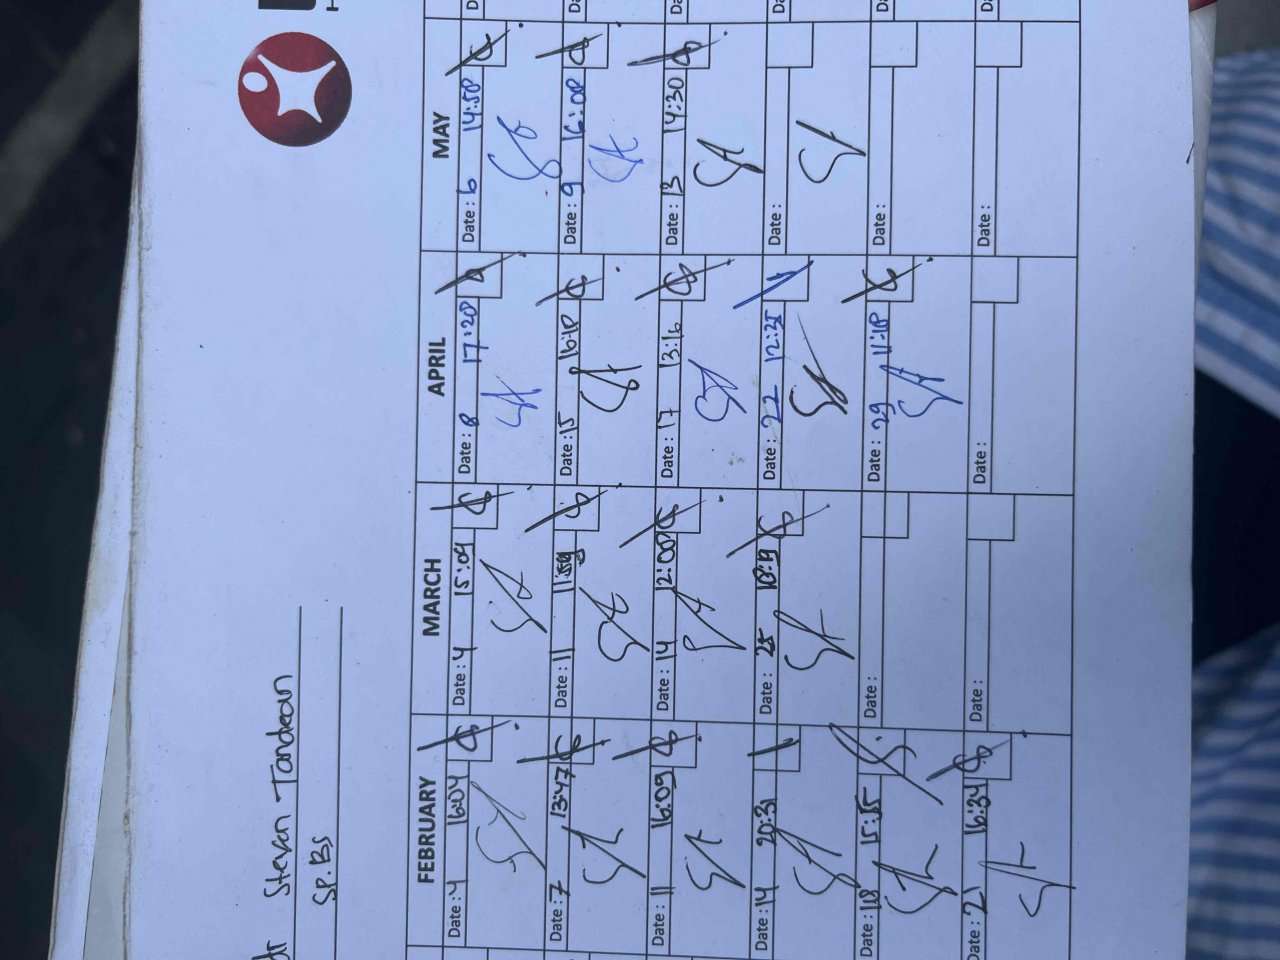 dr Steven Tandean
Sp.BS
FEBRUARY
Date : 4 16:04
Date : 7 13:47
Date : 11 16:09
Date : 14 20:31
Date : 18 15:15
Date : 21 16:34
MARCH
Date : 4 15:09
Date : 11 11:59
Date : 14 12:00
Date : 25
Date :
Date :
APRIL
Date : 8 17:20
Date : 15 16:18
Date : 17 13:16
Date : 22 12:35
Date : 29 11:18
Date :
MAY
Date : 6 14:50
Date : 9 16:08
Date : 13 14:30
Date :
Date :
Date :